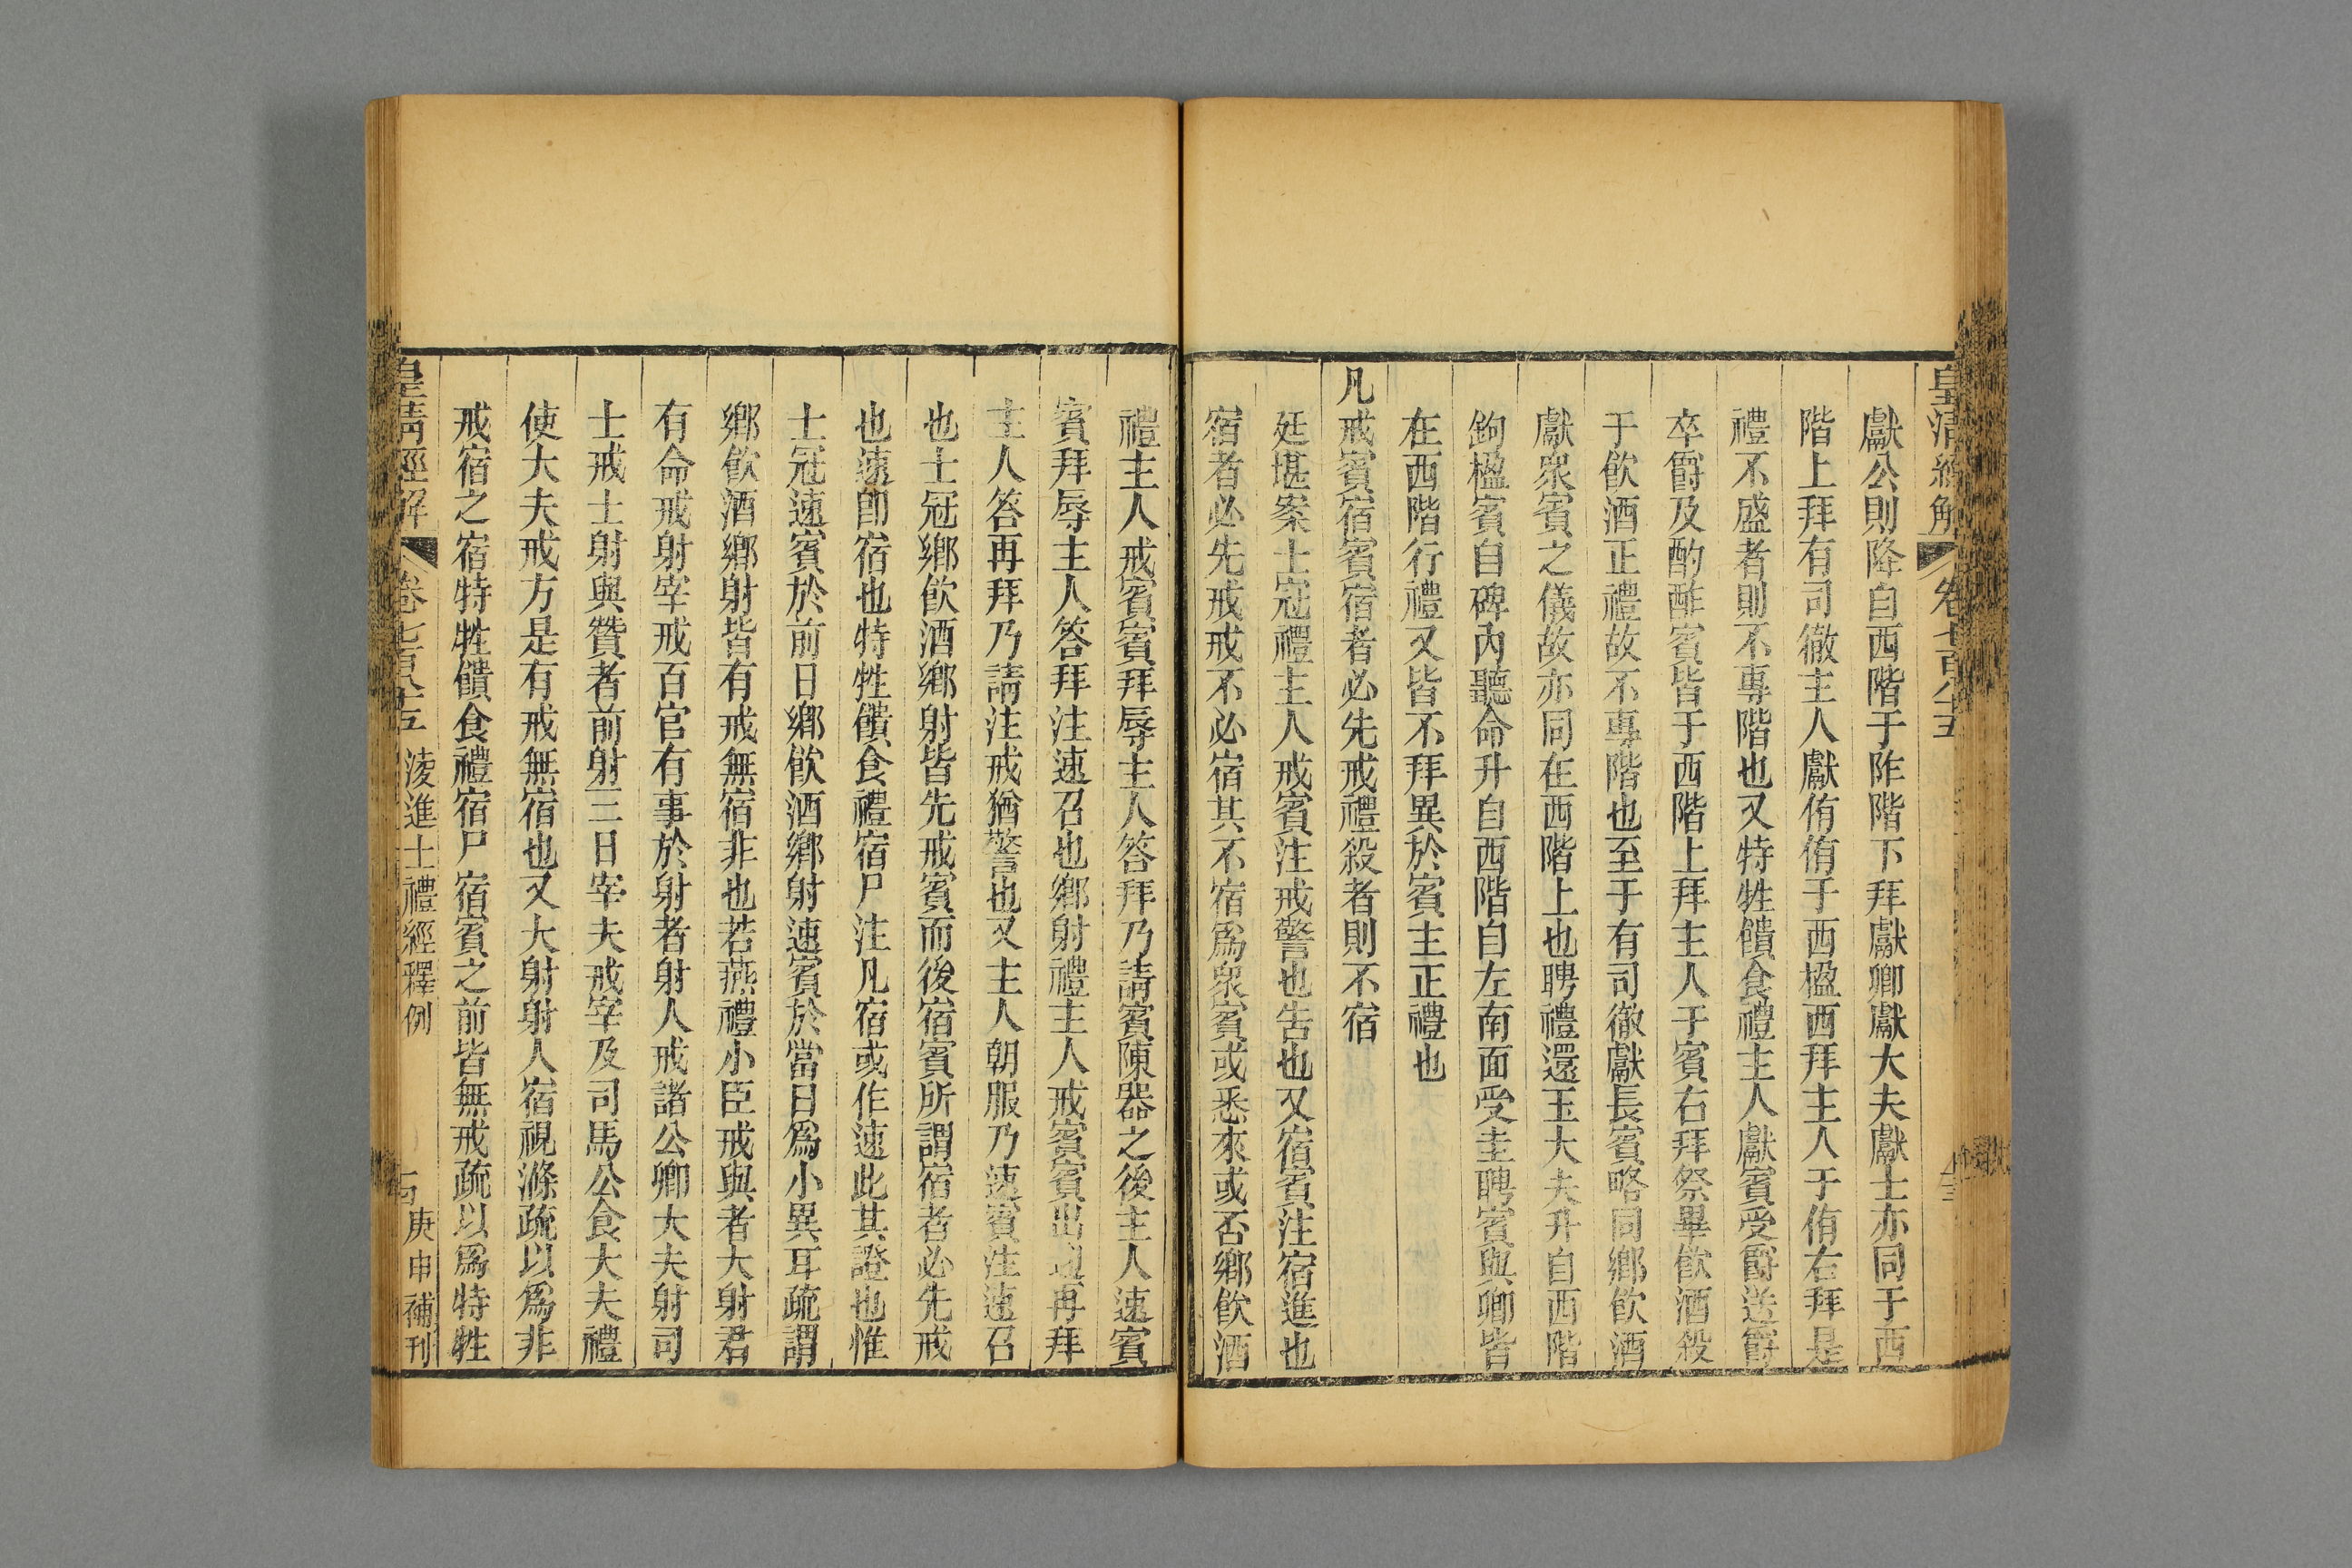 皇清經解 卷七百八十五
獻公則降自西階于阼階下拜獻卿獻大夫獻士亦同于西
階上拜有司徹主人獻侑侑于西楹西拜主人于侑右拜是
禮不盛者則不專階也又特牲饋食禮主人獻賓受爵送爵
卒爵及酌酢賓皆于西階上拜主人于賓右拜祭畢飲酒殺
于飲酒正禮故不專階也至于有司徹獻長賓略同鄉飲酒
獻眾賓之儀故亦同在西階上也聘禮還玉大夫升自西階
鉤楹賓自碑內聽命升自西階自左南面受圭聘賓與卿皆
在西階行禮又皆不拜異於賓主正禮也
凡戒賓宿賓宿者必先戒禮殺者則不宿
廷堪案士冠禮主人戒賓注戒警也告也又宿賓注宿進也
宿者必先戒戒不必宿其不宿爲眾賓或悉來或否鄉飲酒
禮主人戒賓賓拜辱主人答拜乃請賓陳器之後主人速賓
賓拜辱主人答拜注速召也鄉射禮主人戒賓賓出迎再拜
主人答再拜乃請注戒猶警也又主人朝服乃速賓注速召
也士冠鄉飲酒鄉射皆先戒賓而後宿賓所謂宿者必先戒
也速卽宿也特牲饋食禮宿尸注凡宿或作速此其證也惟
士冠速賓於前日鄉飲酒鄉射速賓於當日爲小異耳疏謂
鄉飲酒鄉射皆有戒無宿非也若燕禮小臣戒與者大射君
有命戒射宰戒百官有事於射者射人戒諸公卿大夫射司
士戒士射與贊者前射三日宰夫戒宰及司馬公食大夫禮
使大夫戒方是有戒無宿也又大射射人宿視滌疏以爲非
戒宿之宿特牲饋食禮宿尸宿賓之前皆無戒疏以爲特牲
皇清經解 卷七百八十五 淩進士禮經釋例 庚申補刊